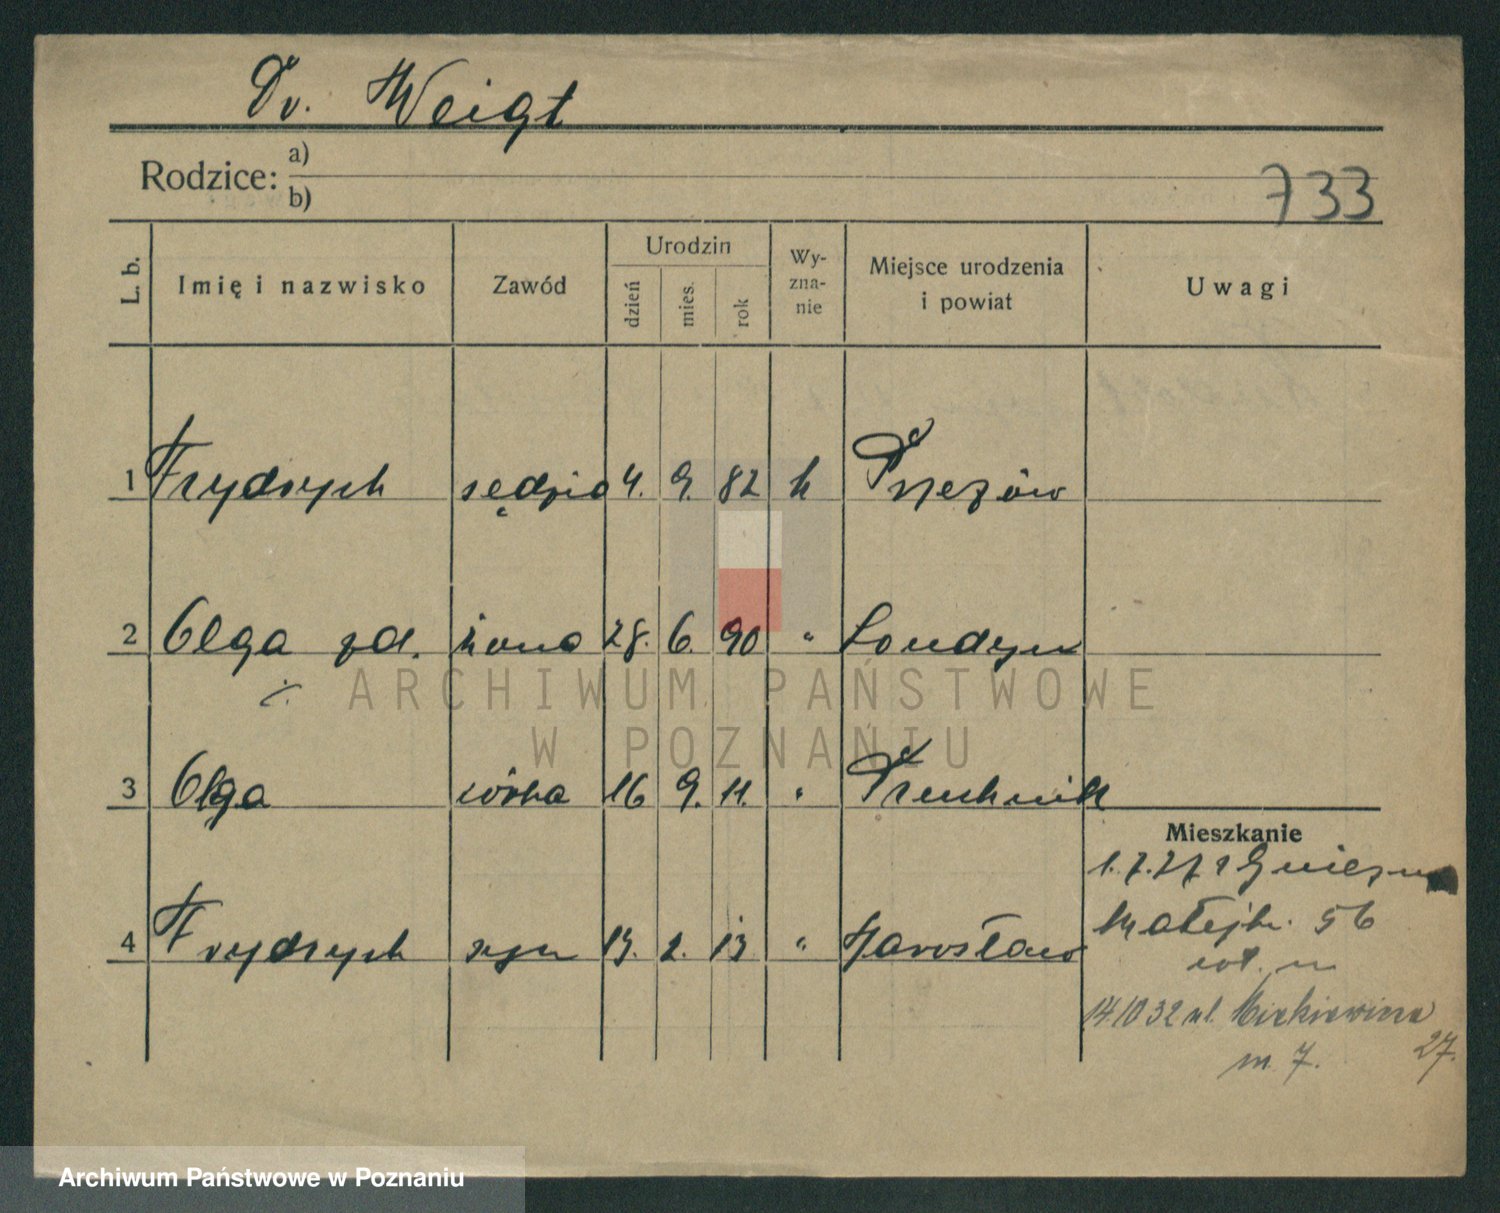 Dr. Weigt
Rodzice: a)
b)
733
L. b. Imię i nazwisko Zawód Urodzin dzień mies. rok Wy-zna-nie Miejsce urodzenia i powiat Uwagi
1 Frydrych sędzia 4. 9. 82 k Rzeszów
2 Olga zd. żona 28. 6. 90 " Londyn
3 Olga córka 16 9. 11. "
4 Frydrych syn 2. 13 " Jarosław
Mieszkanie
1.7.27 z Gniezna
Matejki 56
14.10 32 ul. Mickiewicza
27.
m 7.
ARCHIWUM PAŃSTWOWE
W POZNANIU
Archiwum Państwowe w Poznaniu